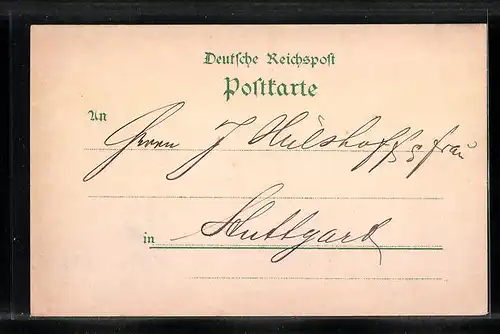 Deutsche Reichspost
Postkarte
An
Herrn J Hülshoff & Frau
in Stuttgart